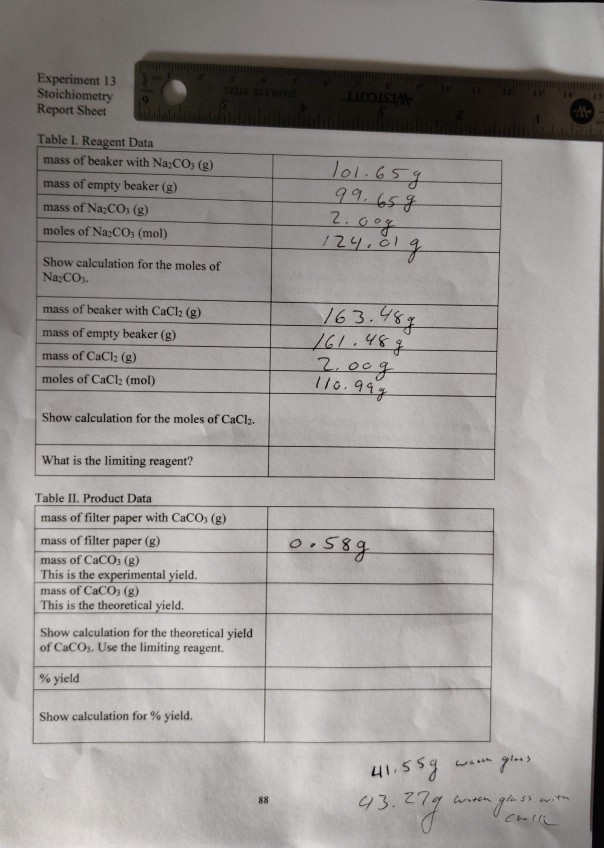 Experiment 13
Stoichiometry
Report Sheet
STAINLESS STEEL
WESTCOTT
Table I. Reagent Data
mass of beaker with Na₂CO₃ (g) 101.65g
mass of empty beaker (g) 99.65g
mass of Na₂CO₃ (g) 2.00g
moles of Na₂CO₃ (mol) 124.01 g
Show calculation for the moles of
Na₂CO₃.
mass of beaker with CaCl₂ (g) 163.48g
mass of empty beaker (g) 161.48g
mass of CaCl₂ (g) 2.00g
moles of CaCl₂ (mol) 110.99g
Show calculation for the moles of CaCl₂.
What is the limiting reagent?
Table II. Product Data
mass of filter paper with CaCO₃ (g)
mass of filter paper (g) 0.58g
mass of CaCO₃ (g)
This is the experimental yield.
mass of CaCO₃ (g)
This is the theoretical yield.
Show calculation for the theoretical yield
of CaCO₃. Use the limiting reagent.
% yield
Show calculation for % yield.
41.55g glass
88
43.27g glass with